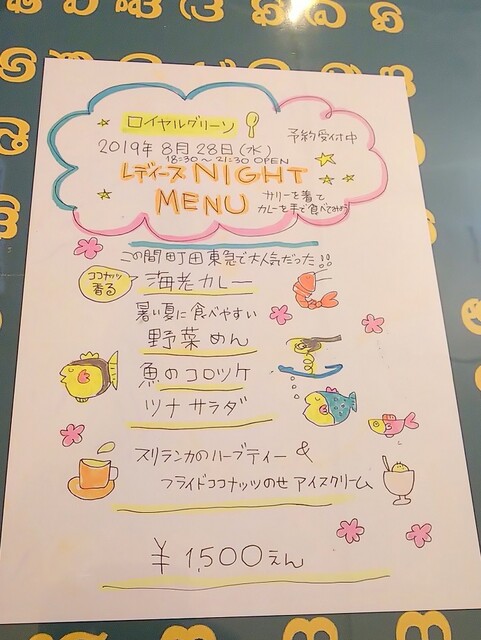 ロイヤルグリーン
予約受付中
2019年 8月 28日(水)
18:30～21:30 OPEN
レディース NIGHT
MENU
サリーを着て
カレーを手で食べてみよう
この間 町田東急で大人気だった!!
ココナッツ
香る
海老カレー
暑い夏に食べやすい
野菜めん
魚のコロッケ
ツナサラダ
スリランカのハーブティー &
フライドココナッツのせ アイスクリーム
¥ 1,500えん